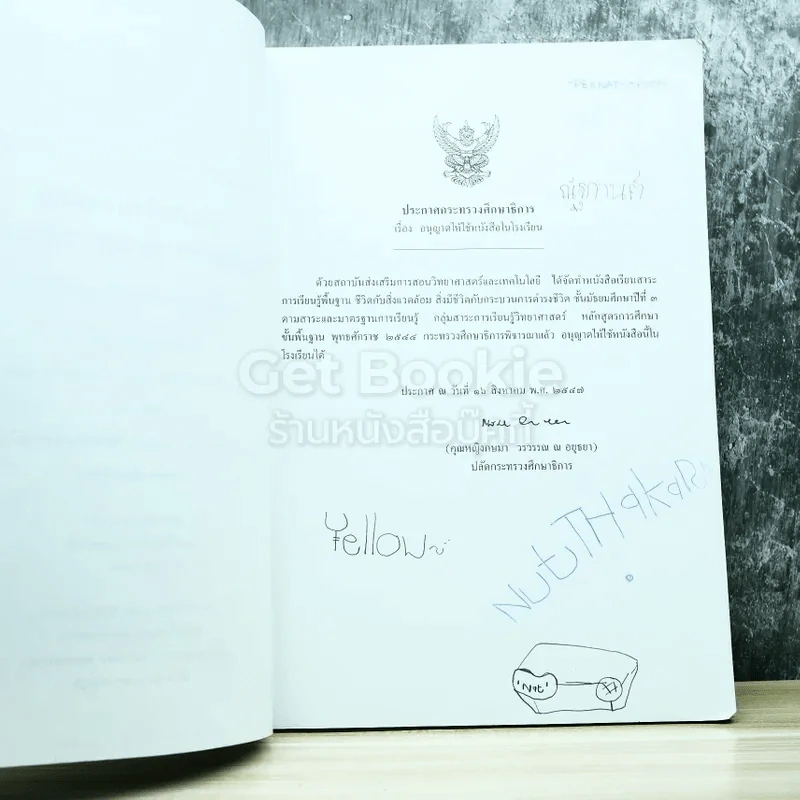 ณัฐกานต์
ประกาศกระทรวงศึกษาธิการ
เรื่อง อนุญาตให้ใช้หนังสือในโรงเรียน
ด้วยสถาบันส่งเสริมการสอนวิทยาศาสตร์และเทคโนโลยี ได้จัดทำหนังสือเรียนสาระ
การเรียนรู้พื้นฐาน ชีวิตกับสิ่งแวดล้อม สิ่งมีชีวิตกับกระบวนการดำรงชีวิต ชั้นมัธยมศึกษาปีที่ ๓
ตามสาระและมาตรฐานการเรียนรู้ กลุ่มสาระการเรียนรู้วิทยาศาสตร์ หลักสูตรการศึกษา
ขั้นพื้นฐาน พุทธศักราช ๒๕๔๔ กระทรวงศึกษาธิการพิจารณาแล้ว อนุญาตให้ใช้หนังสือนี้ใน
โรงเรียนได้
Get Bookie
ประกาศ ณ วันที่ ๑๖ สิงหาคม พ.ศ. ๒๕๔๗
ร้านหนังสือบุ๊คกี้
(คุณหญิงกษมา วรวรรณ ณ อยุธยา)
ปลัดกระทรวงศึกษาธิการ
NutTHakaRn
Yellow
'Nut'